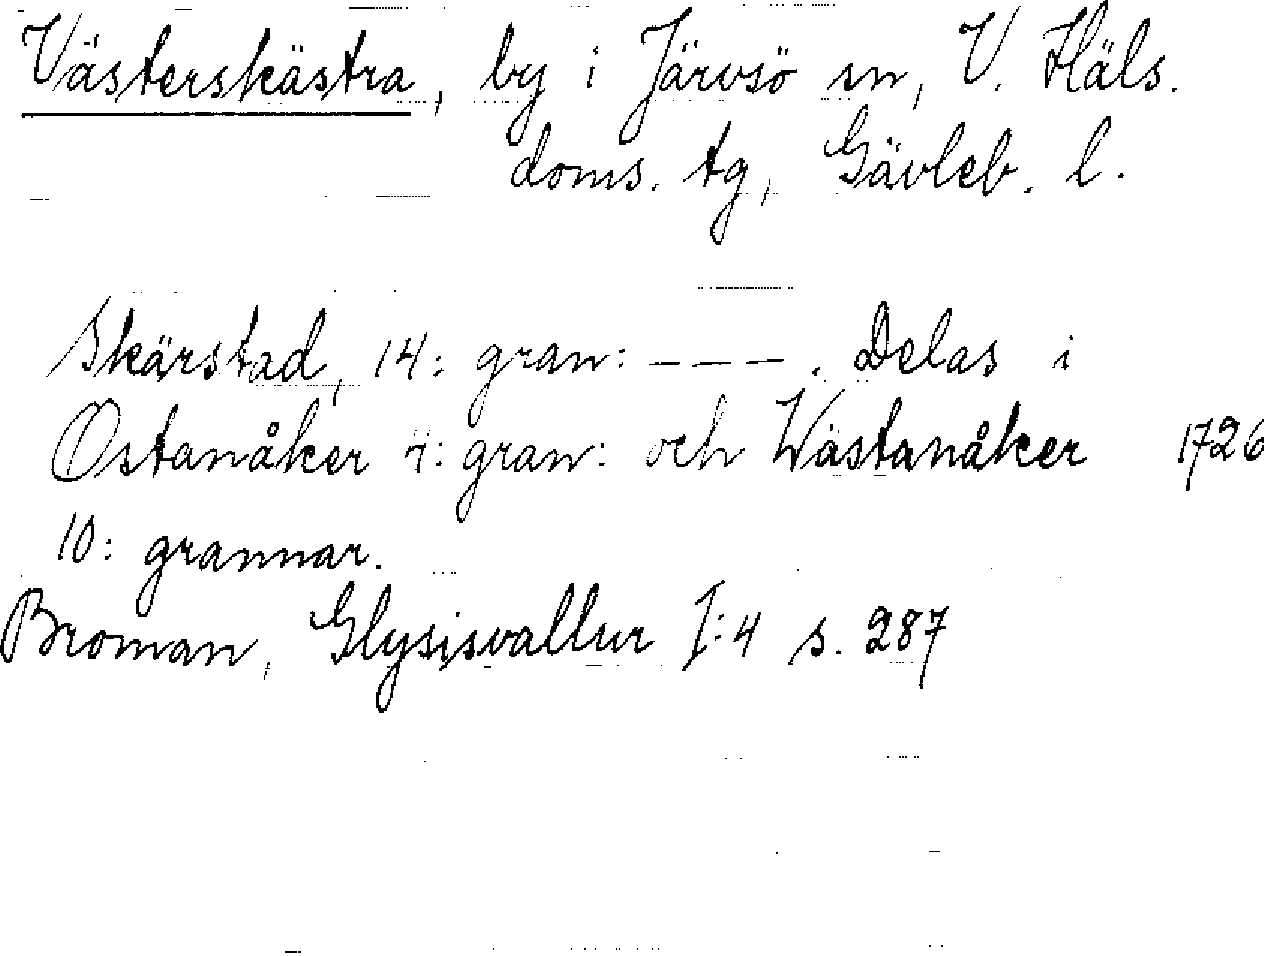 Västerskästra, by i Järvsö sn, V. Häls.
doms. tg, Gävleb. l.
Skärstad, 14: gran: – – – . Delas i
Ostanåker 4: gran: och Wästanåker 1726
10: grannar.
Broman, Glysisvallur I:4 s. 287